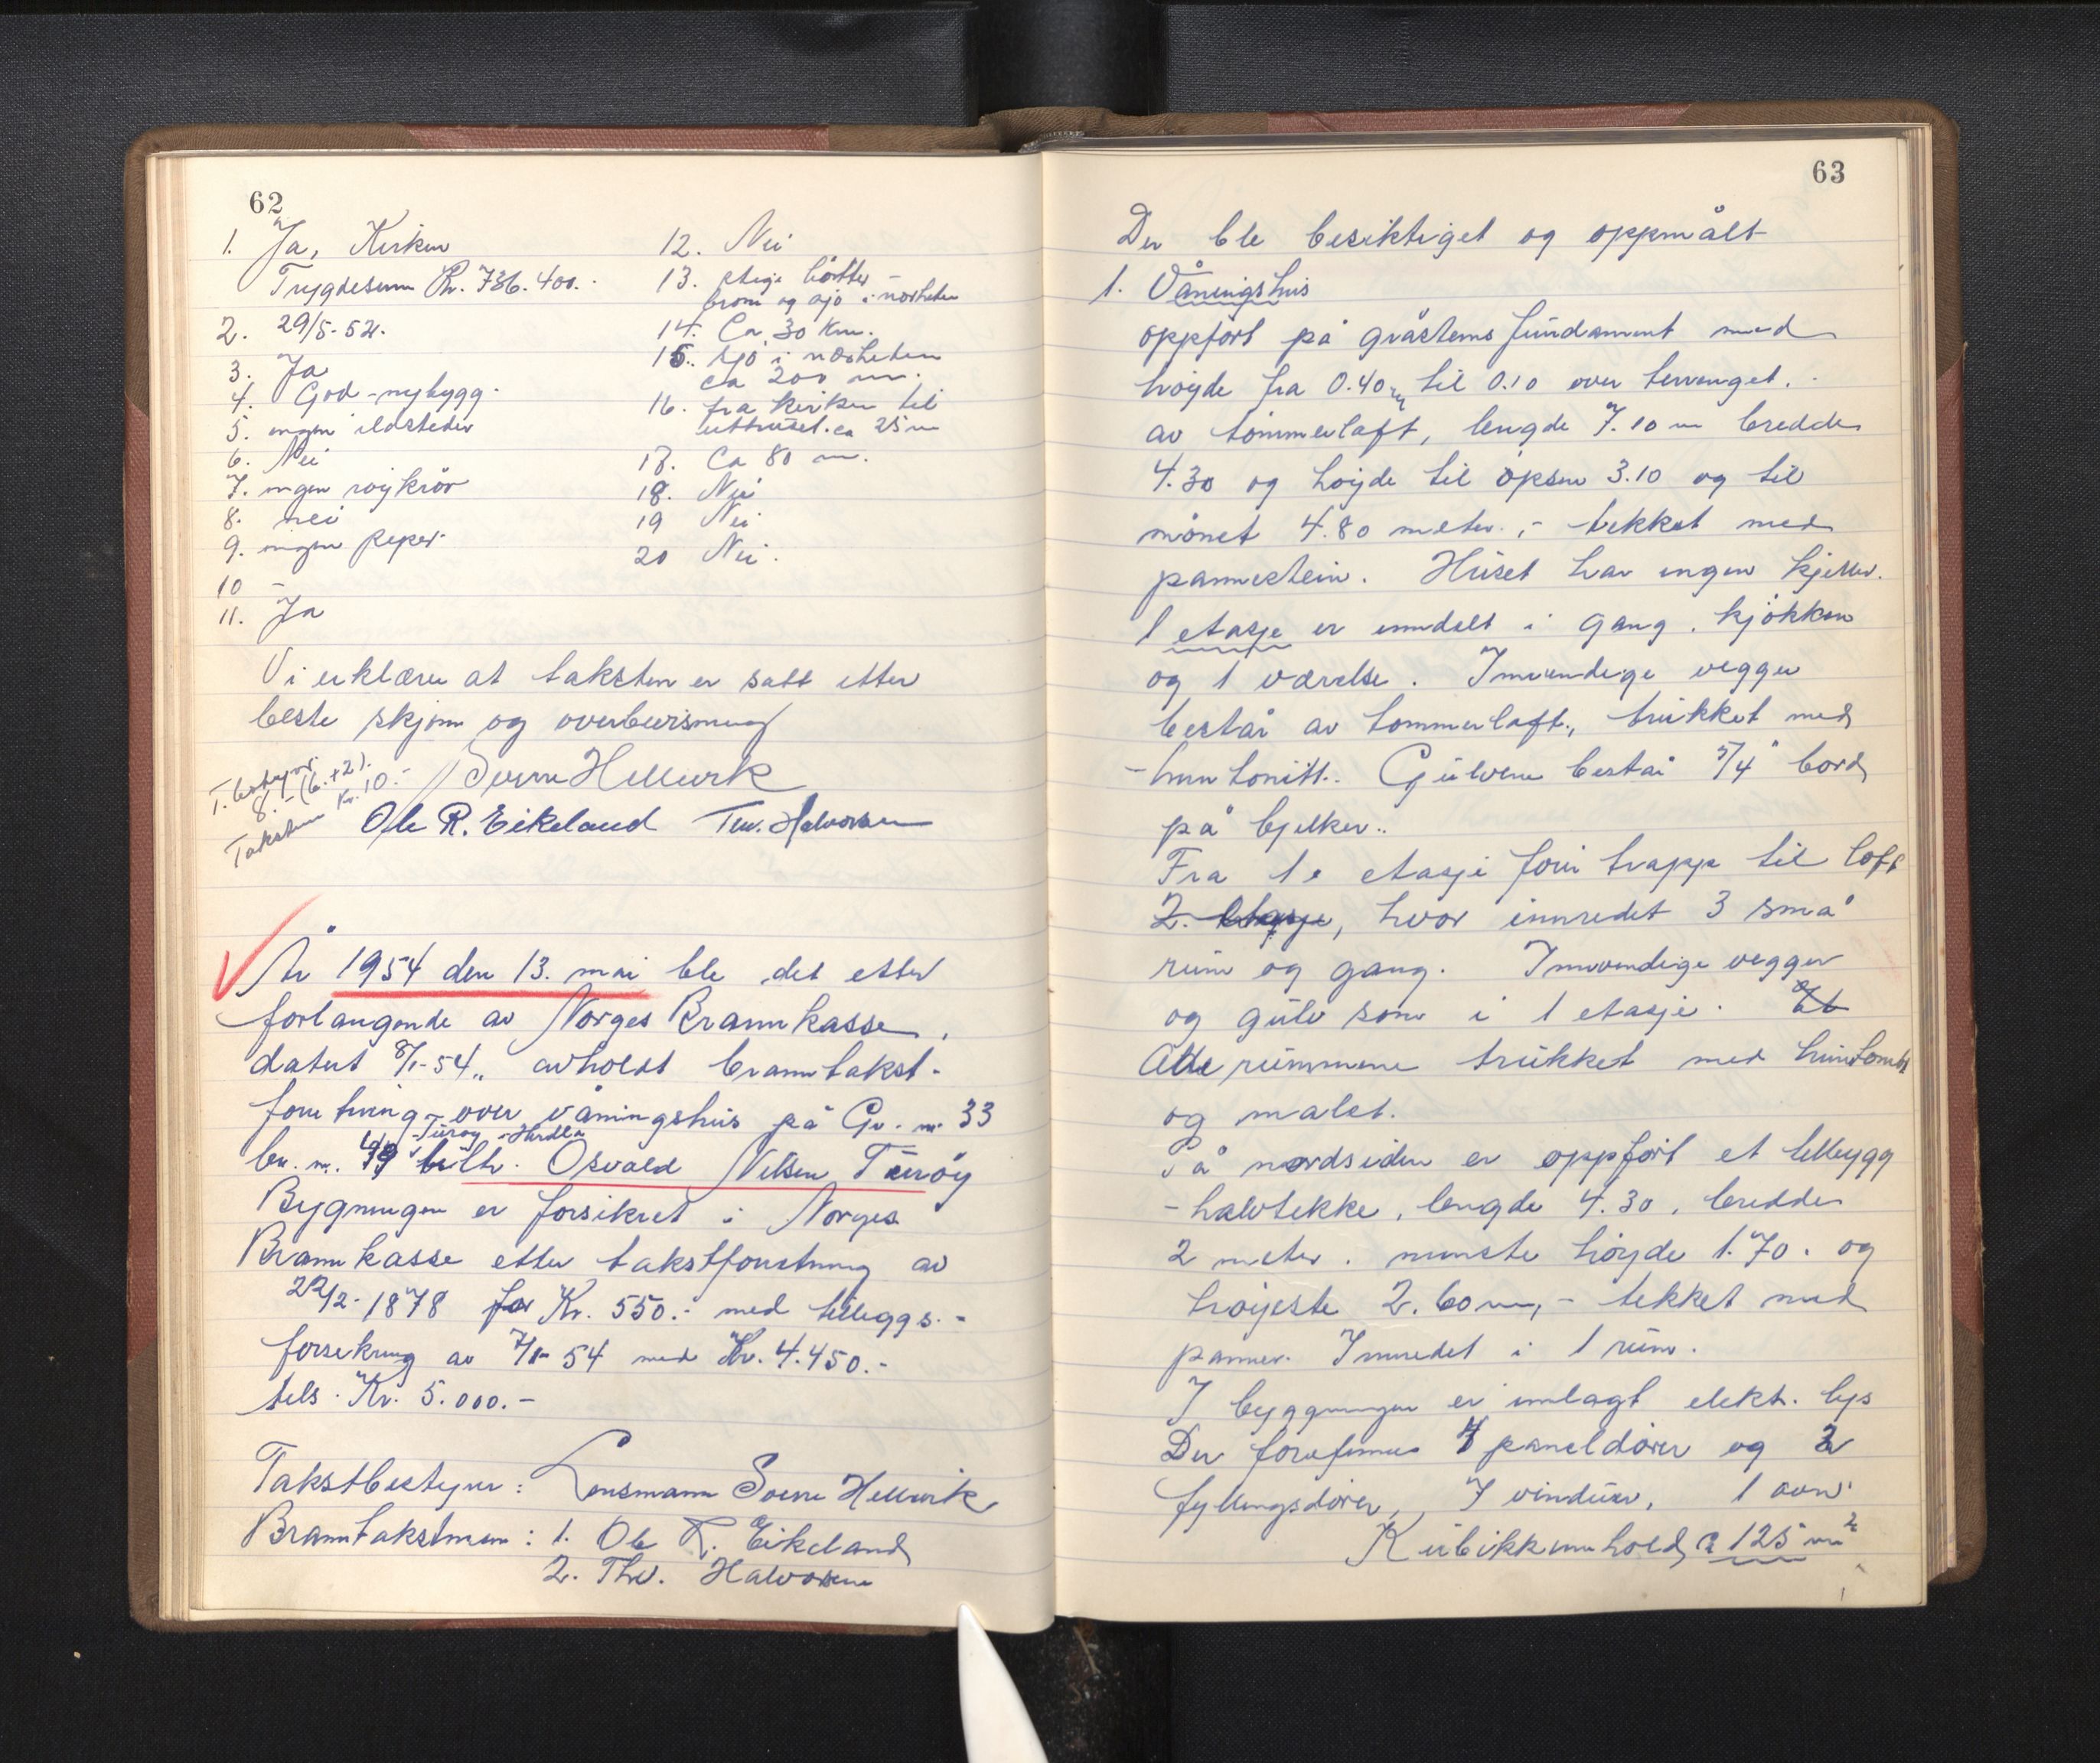 62
1. Ja, Kirken
Trygdesum Kr. 736.400.-
2. 29/5-52.
3. Ja
4. God - nybygg.
5. ingen ildsteder
6. Nei
7. ingen røykrør
8. nei
9. ingen peper.
10 -
11. Ja
12. Nei
13. stige bøtter
brønn og sjø i nærheten
14. Ca 30 km.
15. sjø i nærheten
ca 200 m.
16. fra kirken til
uthuset. ca 25 m
17. Ca 80 m.
18. Nei
19 Nei
20 Nei.
Vi erklærer at taksten er satt etter
beste skjønn og overbevisning
T. bestyrer
8.- (6.+2).
Takstm Kr. 10.-
Sverre Hellevik
Ole R. Eikeland Thv. Halvorsen
År 1954 den 13. mai ble det etter
forlangende av Norges Brannkasse,
datert 8/1-54., avholdt branntakst-
foretning over våningshus på Gr. nr. 33
- Turøy - Herdla
br. nr. 49 tilh. Osvald Nilsen Turøy
Bygningen er forsikret i Norges
Brannkasse etter takstforretning av
22/2-1878 for Kr. 550.- med tilleggs.-
forsikring av 7/1-54 med Kr. 4.450.-
tils. Kr. 5.000.-
Takstbestyrer: Lensmann Sverre Hellevik
Branntakstmenn: 1. Ole R. Eikeland
2. Thv. Halvorsen
63
Der ble besiktiget og oppmålt
1. Våningshus
oppført på gråstens fundament med
høyde fra 0.40 m til 0.10 over terrenget.
av tømmerlaft, lengde 7.10 m bredde
4.30 og høyde til opsen 3.10 og til
mønet 4.80 meter., - tekket med
pannestein. Huset har ingen kjeller.
1 etasje er inndelt i gang, kjøkken
og 1 værelse. Innvendige vegger
består av tømmerlaft, trukket med
-huntonitt. Gulvene består 5/4" bord
på bjelker..
Fra 1. etasje fører trapp til loft
2. etasje, hvor innredet 3 små
rum og gang. Innvendige vegger
og gulv som i 1 etasje.
Alle rummene trukket med huntonitt
og malet.
På nordsiden er oppført et tilbygg
- halvtekke, lengde 4.30, bredde
2 meter, minste høyde 1.70. og
høyeste 2.60 m, - tekket med
panner. Innredet i 1 rum.
I byggningen er innlagt elekt. lys
Der forefinnes 4 paneldører og 2
fyllingsdører, 7 vinduer, 1 ovn.
Kubikkinnhold ca 125 m²